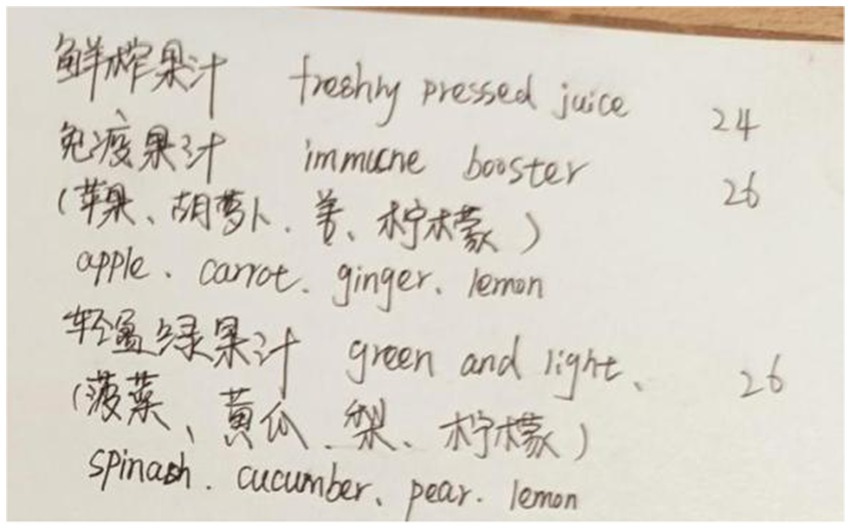 鲜榨果汁 freshly pressed juice 24
免疫果汁 immune booster 26
(苹果、胡萝卜、姜、柠檬)
apple、carrot、ginger、lemon
轻盈绿果汁 green and light、 26
(菠菜、黄瓜、梨、柠檬)
spinash、cucumber、pear、lemon